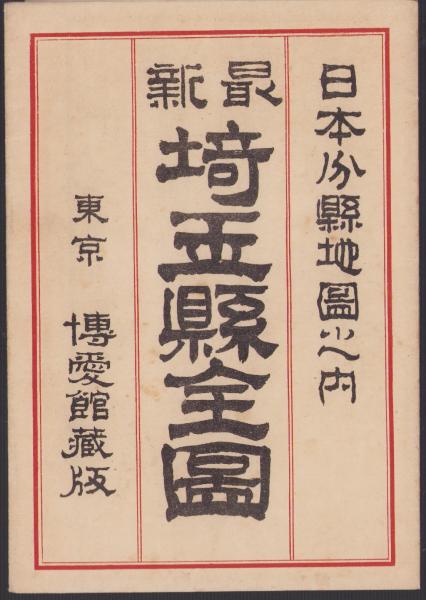 日本分縣地圖之内
最新
埼玉縣全圖
東京 博愛館藏版